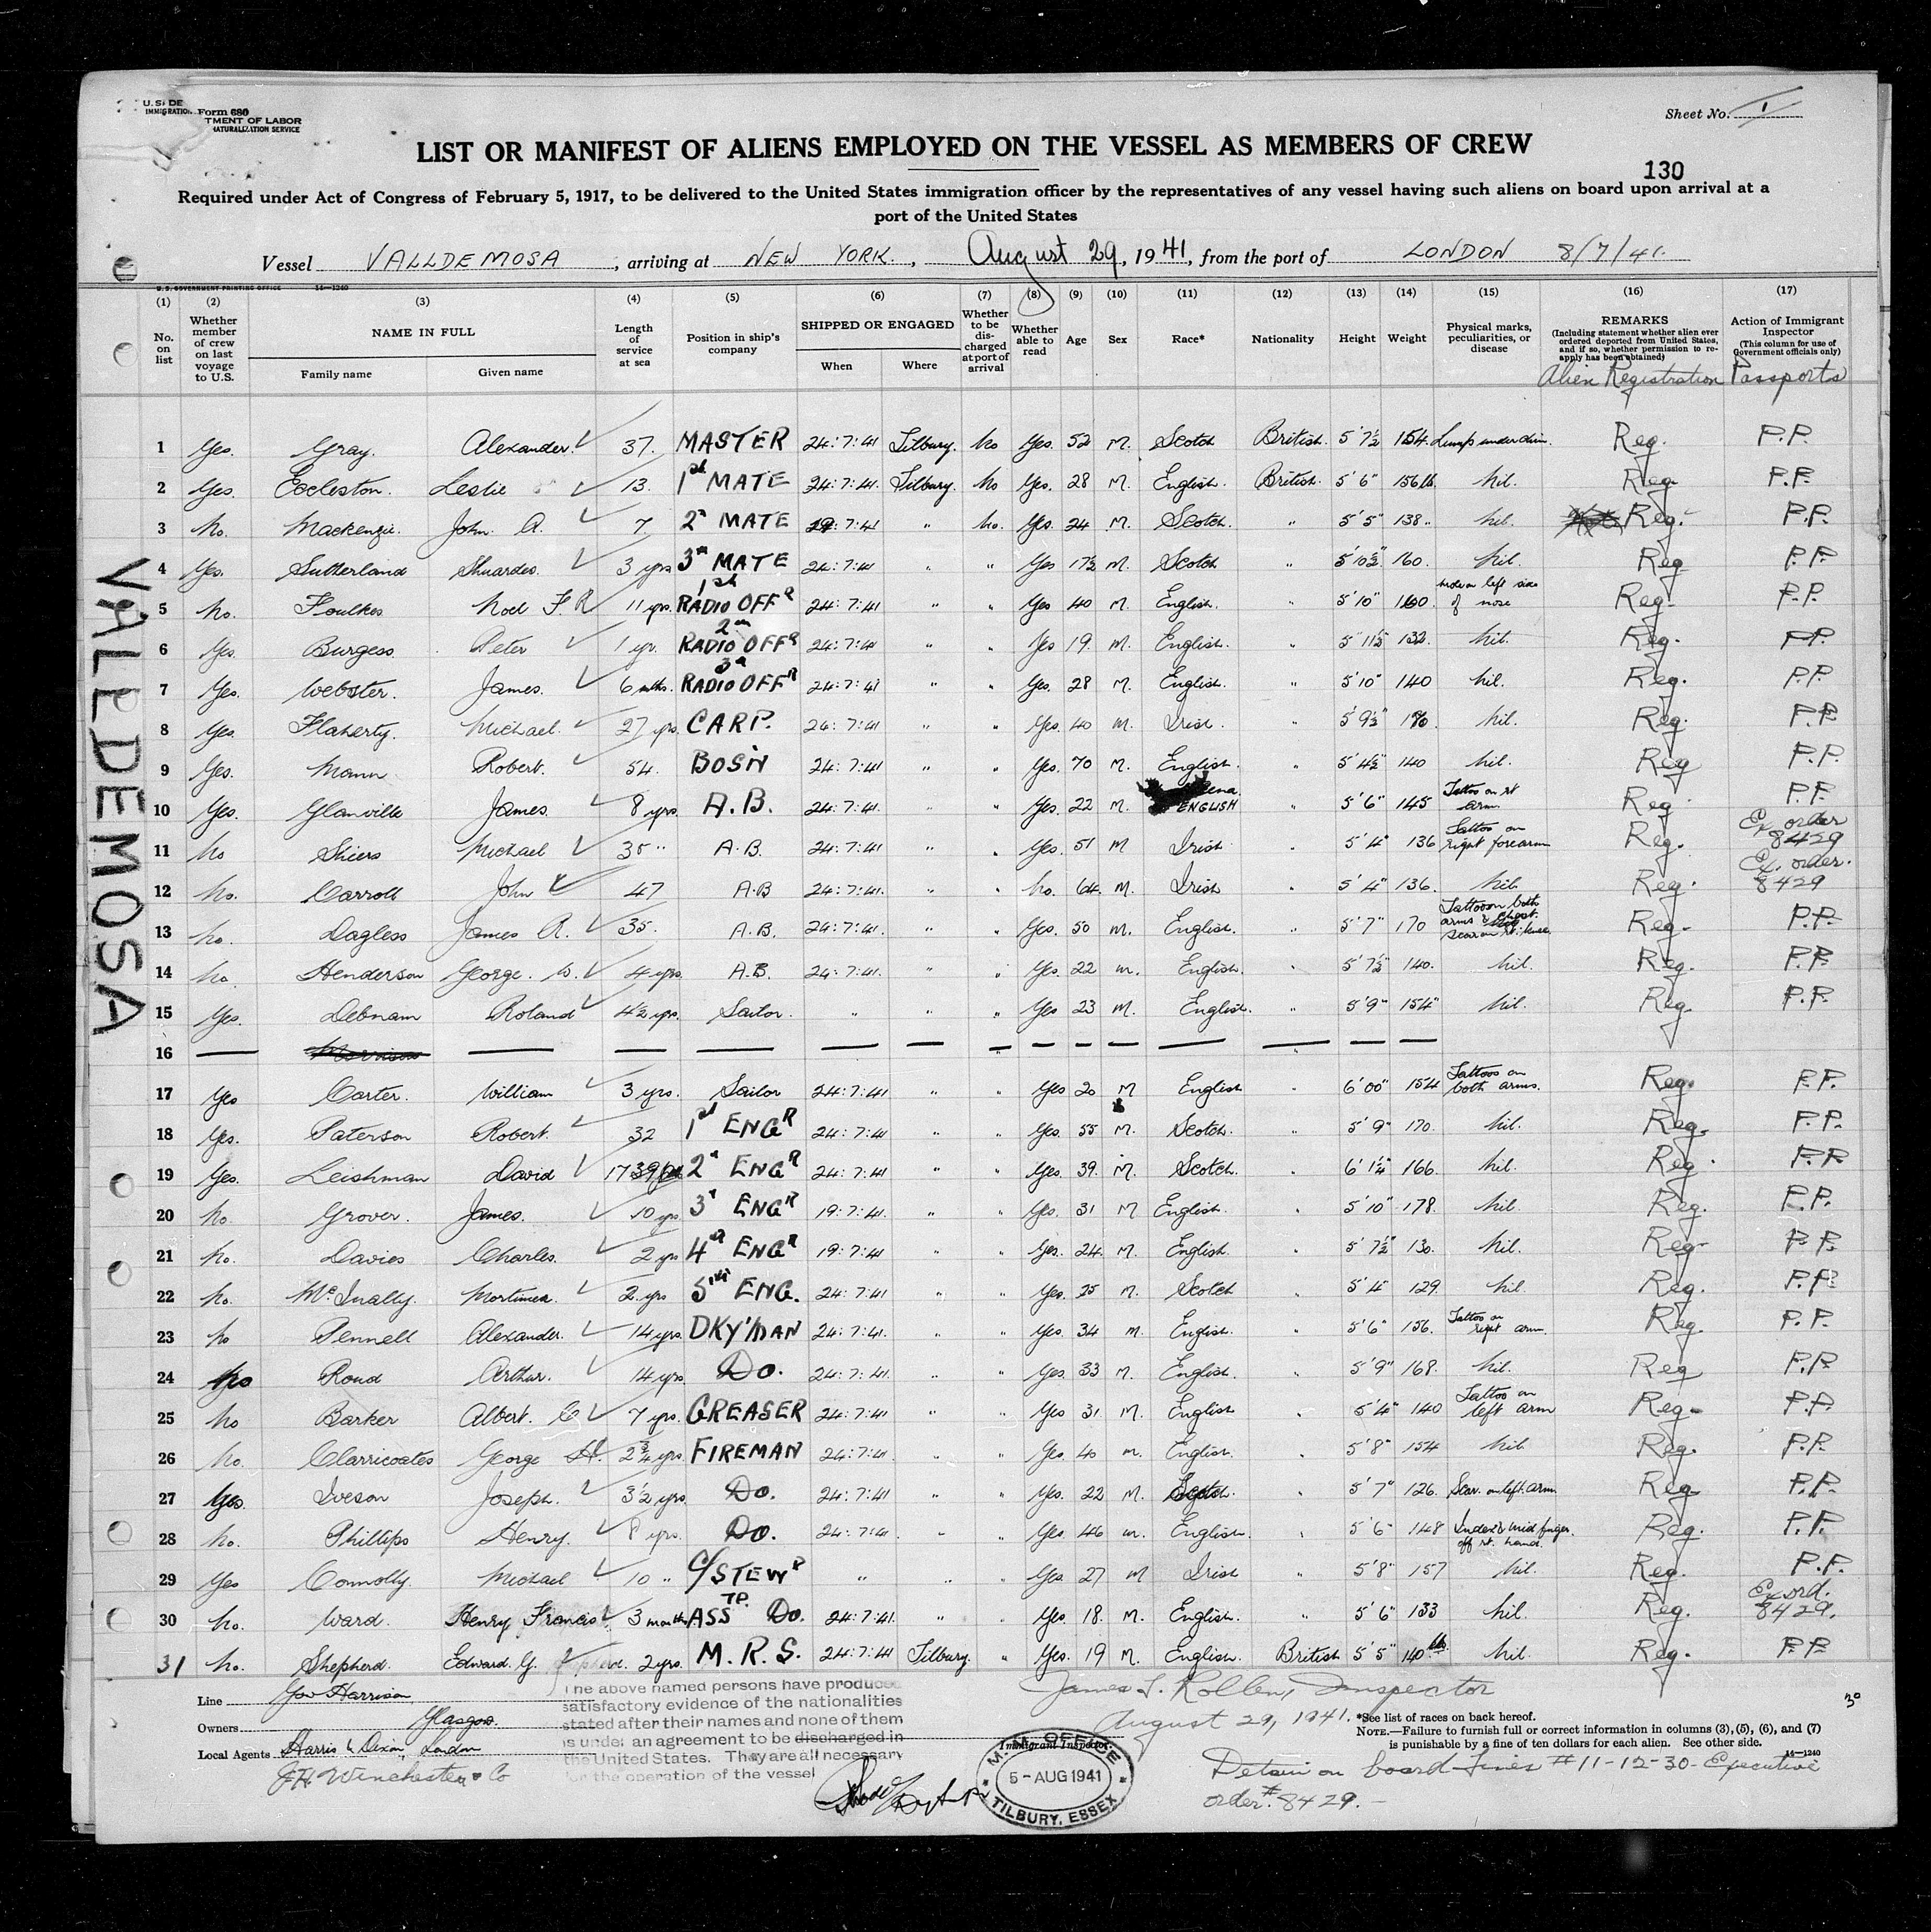 U. S. DE
IMMIGRATION Form 680
TMENT OF LABOR
NATURALIZATION SERVICE
Sheet No. 1
LIST OR MANIFEST OF ALIENS EMPLOYED ON THE VESSEL AS MEMBERS OF CREW
130
Required under Act of Congress of February 5, 1917, to be delivered to the United States immigration officer by the representatives of any vessel having such aliens on board upon arrival at a
port of the United States
Vessel VALLDEMOSA, arriving at NEW YORK., August 29, 1941, from the port of LONDON 8/7/41.
U. S. GOVERNMENT PRINTING OFFICE 14—1240
(1) (2) (3) (4) (5) (6) (7) (8) (9) (10) (11) (12) (13) (14) (15) (16) (17)
No. on list
Whether member of crew on last voyage to U.S.
NAME IN FULL
Family name Given name
Length of service at sea
Position in ship's company
SHIPPED OR ENGAGED
When Where
Whether to be discharged at port of arrival
Whether able to read
Age
Sex
Race*
Nationality
Height
Weight
Physical marks, peculiarities, or disease
REMARKS
(Including statement whether alien ever ordered deported from United States, and if so, whether permission to reapply has been obtained)
Alien Registration
Action of Immigrant Inspector
(This column for use of Government officials only)
Passports
1 Yes. Gray. Alexander. 37. MASTER 24:7:41 Tilbury. No Yes. 52 M. Scotch British. 5'7½ 154. Lump under chin. Reg. P.P.
2 Yes. Eccleston. Leslie 13. 1st MATE 24:7:41. Tilbury. No Yes. 28 M. English. British. 5'6" 156 lb. Nil. Reg. P.P.
3 No. Mackenzie. John A. 7. 2d MATE 19:7:41 " No. Yes. 24 M. Scotch. " 5'5" 138 " Nil. Reg. P.P.
4 Yes. Sutherland 3 yrs 3rd MATE 24:7:41 " " Yes 17½ M. Scotch " 5'10½" 160. Nil. Reg P.P.
5 No. Foulkes Noel F.R 11 yrs. 1st RADIO OFFR 24:7:41 " " Yes 40 M. English. " 5'10" 160. Mole on left side of nose Reg. P.P.
6 Yes. Burgess. Peter 1 yr. 2nd RADIO OFFR 24:7:41 " " Yes 19. M. English. " 5'11½ 132. Nil. Reg. P.P.
7 Yes. Webster. James. 6 mths. 3d RADIO OFFR 24:7:41 " " Yes. 28 M. English. " 5'10" 140 Nil. Reg. P.P.
8 Yes. Flaherty. Michael. 27 yrs. CARP. 24:7:41 " " Yes. 40 M. Irish. " 5'9½" Nil. Reg. P.P.
9 Yes. Mann Robert. 54. BOS'N 24:7:41 " " Yes. 70 M. English. " 5'4½" 140 Nil. Reg P.P.
10 Yes. Glanville James. 8 yrs. A.B. 24:7:41. " " Yes. 22 M. ENGLISH " 5'6" 145 Tattoo on rt arm. Reg. P.P.
11 No Michael 35 " A.B. 24:7:41 " " Yes. 51 M Irish " 5'4" 136 Tattoo on right forearm Reg. Ex. order 8429
12 No. Carroll John 47 A.B 24:7:41. " " No. 64. M. Irish " 5'4" 136. Nil. Reg. Ex. order. 8429
13 No. Dagless James A. 35. A.B. 24:7:41. " " Yes. 50 M. English. " 5'7" 170 Tattoo on both arms & chest. Scar on rt. knee. Reg. P.P.
14 No. Henderson George. W. 4 yrs. A.B. 24:7:41. " " Yes. 22 M. English. " 5'7½" 140. Nil. Reg. P.P.
15 Yes. Debnam Roland 4½ yrs. Sailor. " " " Yes 23 M. English. " 5'9" 154" Nil. Reg P.P.
16 — Morrison — — — — — — — — — — — — —
17 Yes Carter. William 3 yrs. Sailor 24:7:41 " " Yes 20 M English " 6'00" 154 Tattoos on both arms. Reg. P.P.
18 Yes. Paterson Robert. 32 1st ENGR 24:7:41 " " Yes. 55 M. Scotch. " 5'9" 170. Nil. Reg. P.P.
19 Yes. Leishman David 17 2d ENGR 24:7:41 " " Yes. 39. M. Scotch. " 6'1¼" 166. Nil. Reg. P.P.
20 No. Grover. James. 10 yrs 3d ENGR 19:7:41. " " Yes. 31 M English. " 5'10" 178. Nil. Reg. P.P.
21 No. Davies Charles. 2 yrs 4th ENGR 19:7:41 " " Yes. 24. M. English. " 5'7½" 130. Nil. Reg. P.P.
22 No. McInally. Mortimer. 2 yrs 5th ENG. 24:7:41 " " Yes. 25 M. Scotch " 5'4" 129. Nil. Reg. P.P.
23 No Pennell Alexander. 14 yrs. DKY'MAN 24:7:41. " " Yes. 34 M. English. " 5'6" 156. Tattoo on right arm. Reg. P.P.
24 No Roud Arthur. 14 yrs. Do. 24:7:41. " " Yes. 33 M. English. " 5'9" 168. Nil. Reg P.P.
25 No Barker Albert. C 7 yrs. GREASER 24:7:41 " " Yes 31 M. English " 5'4" 140 Tattoo on left arm Reg. P.P.
26 No. Clarricoates George H. 2¾ yrs. FIREMAN 24:7:41. " " Yes. 40 M. English. " 5'8" 154 Nil. Reg. P.P.
27 Yes. Iveson Joseph. 3½ yrs. Do. 24:7:41 " " Yes. 22 M. 5'7" 126. Scar. on left. arm Reg P.P.
28 No. Phillips Henry. 8 yrs. Do. 24:7:41. " " Yes. 46 M. English. " 5'6" 148 Index & mid finger. off rt. hand. Reg. P.P.
29 Yes Connolly. Michael 10 " C/STEWD " " " Yes. 27 M Irish " 5'8" 157 Nil. Reg. P.P.
30 No. Ward. Henry Francis. 3 months ASST Do. 24:7:41. " " Yes. 18. M. English. " 5'6" 133 Nil. Reg. Ex. ord. 8429.
31 No. Shepherd. Edward. G. 2 yrs. M.R.S. 24:7:41 Tilbury. " Yes. 19 M. English. British 5'5" 140 lb. Nil. Reg. P.P.
VALLDEMOSA
Line Gow Harrison
Owners Glasgow.
Local Agents Harris & Dixon, London
J.H. Winchester & Co
The above named persons have produced
satisfactory evidence of the nationalities
stated after their names and none of them
is under an agreement to be discharged in
the United States. They are all necessary
for the operation of the vessel
James T. Rollen, Inspector
August 29, 1941.
Immigrant Inspector.
M.M. OFFICE
5-AUG 1941
TILBURY, ESSEX
30
*See list of races on back hereof.
NOTE.—Failure to furnish full or correct information in columns (3), (5), (6), and (7)
is punishable by a fine of ten dollars for each alien. See other side.
14—1240
Detain on board Lines #11-12-30-Executive
order #8429.-